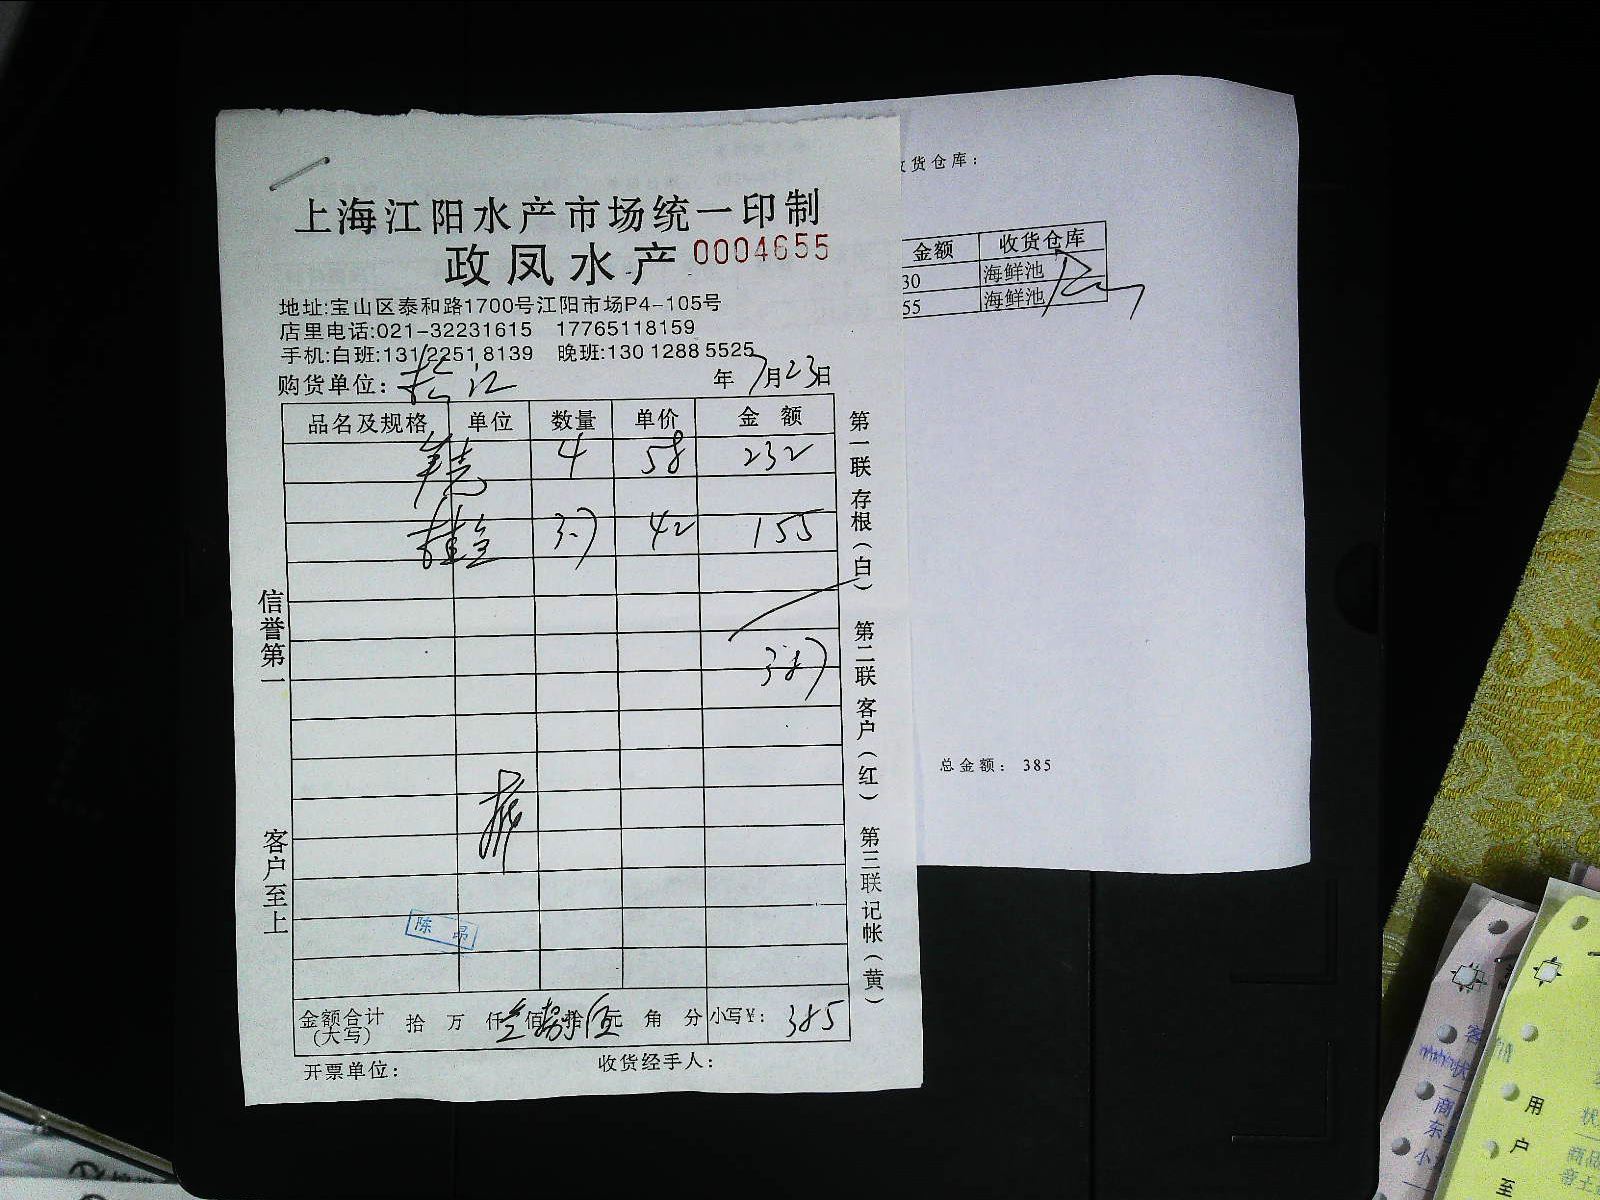 上海江阳水产市场统一印制
政凤水产 0004655
地址:宝山区泰和路1700号江阳市场P4-105号
店里电话:021-32231615 17765118159
手机:白班:131 2251 8139 晚班:130 1288 5525
购货单位: 松江 年7月23日
品名及规格 单位 数量 单价 金额
4 58 232
桂鱼 3.7 42 155
387
陈昂
金额合计(大写) 拾 万 仟 叁 佰 捌 拾 伍 元 角 分 小写¥: 385
开票单位: 收货经手人:
信誉第一
客户至上
第一联存根(白) 第二联客户(红) 第三联记帐(黄)
货仓库:
金额 收货仓库
30 海鲜池
55 海鲜池
总金额: 385
客
商
东
小
用
户
至
状
商品